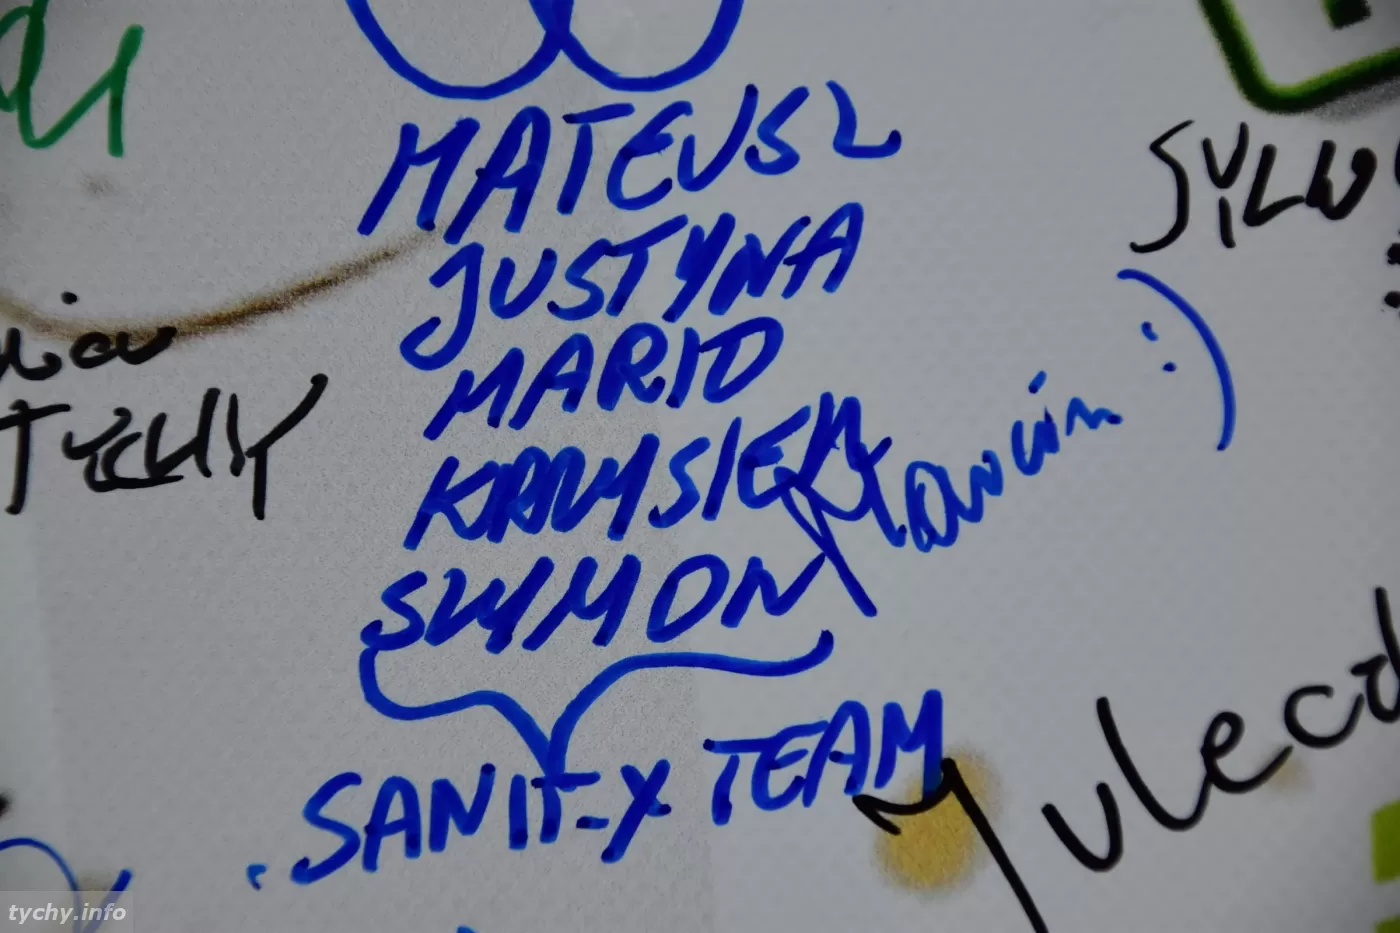 MATEUSZ
JUSTYNA
MARIO
KRZYSIEK
SZYMON
Marcin :)
SANIT-X TEAM
TYCHY
tychy.info